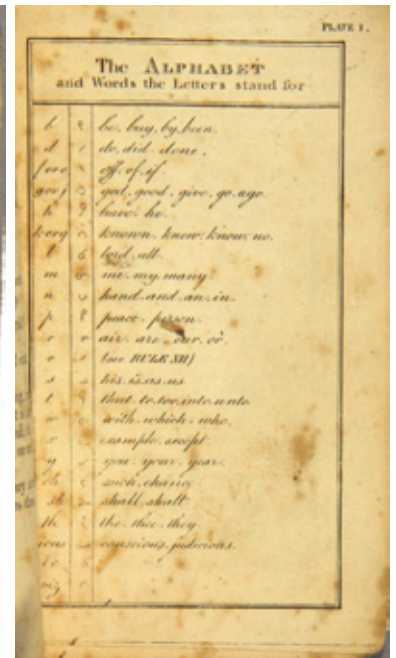 PLATE 1.
The ALPHABET
and Words the Letters stand for
b be. buy. by. been.
d do. did. done.
f or v off. of. if.
g or j god. good. give. go. ago.
h have. he.
k or q known. knew. know. no.
l lord. all.
m me. my. many.
n hand. and. an. in.
p peace. person.
r air. are. our. or.
v (see RULE XII)
s his. is. as. us.
t that. to. too. into. unto.
w with. which. who.
x example. except.
y you. your. year.
ch such. chance.
sh shall. shalt.
th the. thee. they.
ious conscious. judicious.